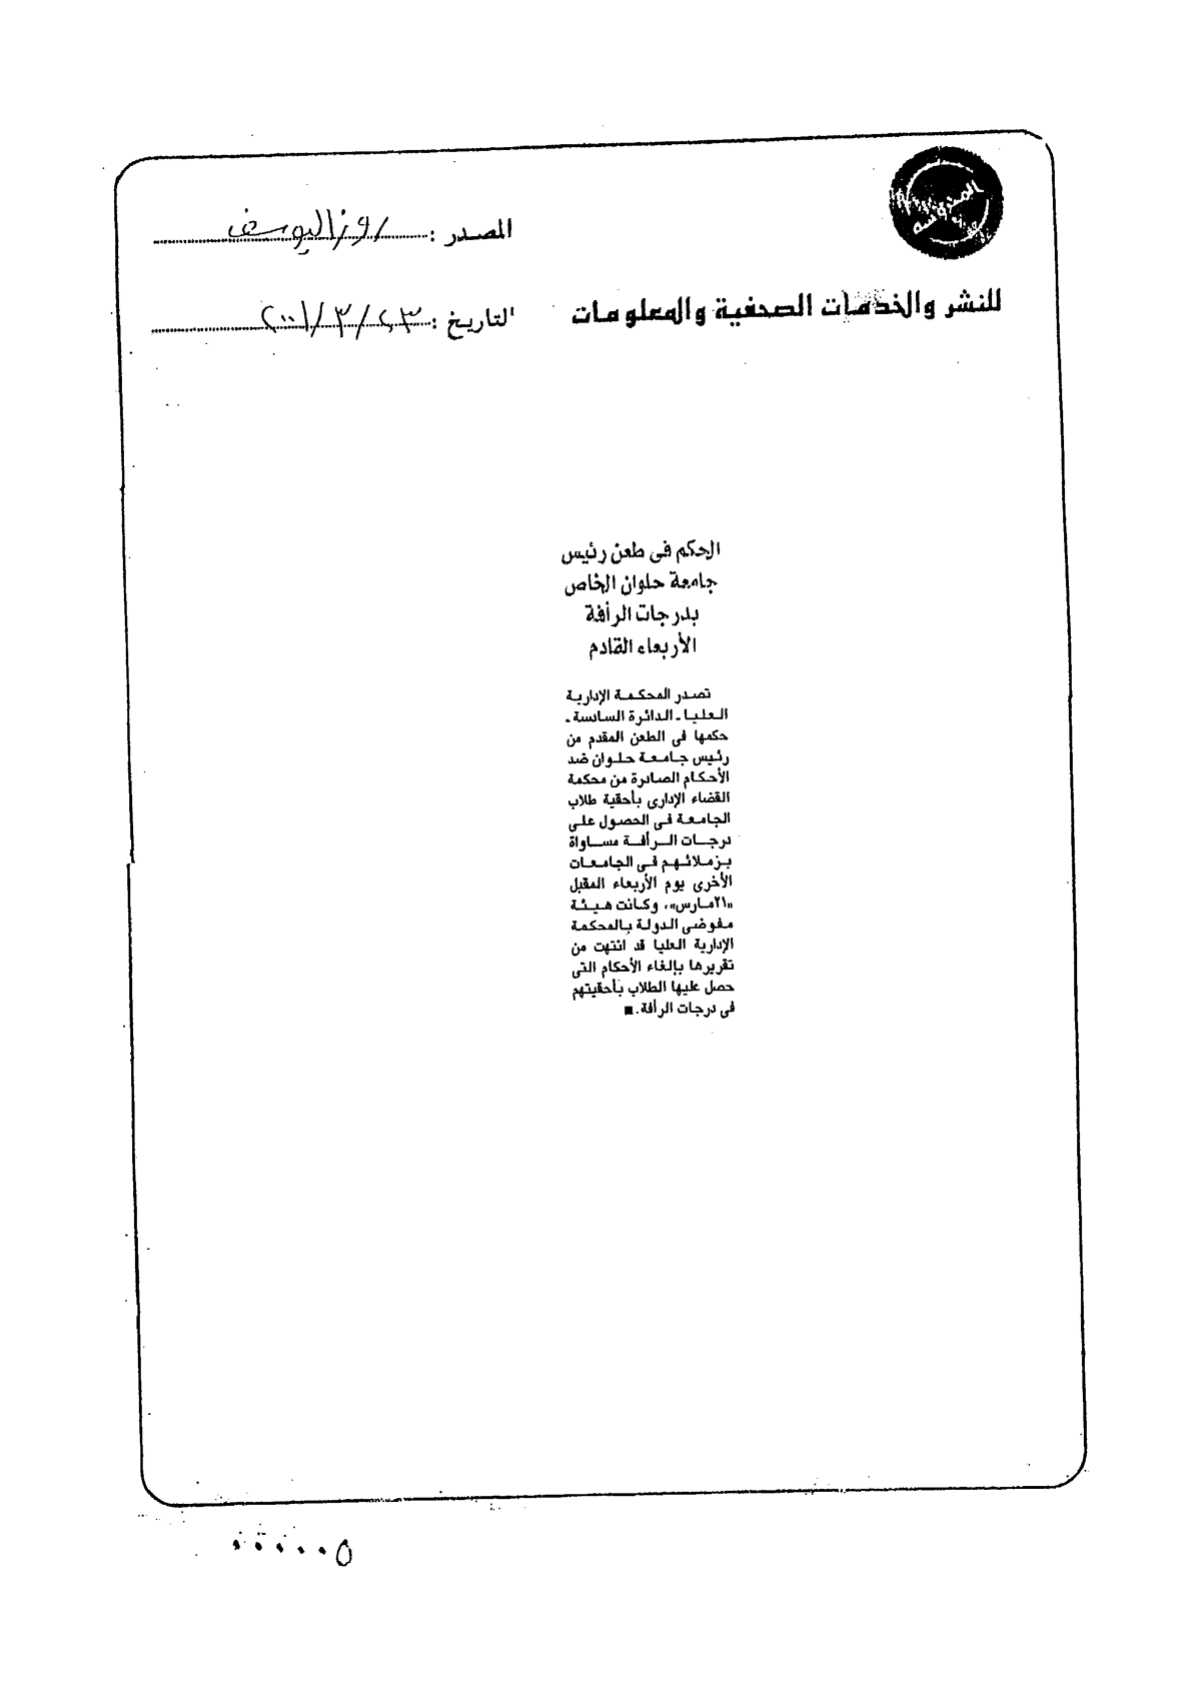 المحروسة
المصدر : روزاليوسف
للنشر والخدمات الصحفية والمعلومات
التاريخ : ٢٣/٣/٢٠٠١
الحكم فى طعن رئيس
جامعة حلوان الخاص
بدرجات الرأفة
الأربعاء القادم
تصدر المحكمة الإدارية
العليا ـ الدائرة السادسة ـ
حكمها فى الطعن المقدم من
رئيس جامعة حلوان ضد
الأحكام الصادرة من محكمة
القضاء الإدارى بأحقية طلاب
الجامعة فى الحصول على
درجات الرأفة مساواة
بزملائهم فى الجامعات
الأخرى يوم الأربعاء المقبل
«٢١مارس»، وكانت هيئة
مفوضى الدولة بالمحكمة
الإدارية العليا قد انتهت من
تقريرها بإلغاء الأحكام التى
حصل عليها الطلاب بأحقيتهم
فى درجات الرأفة. ■